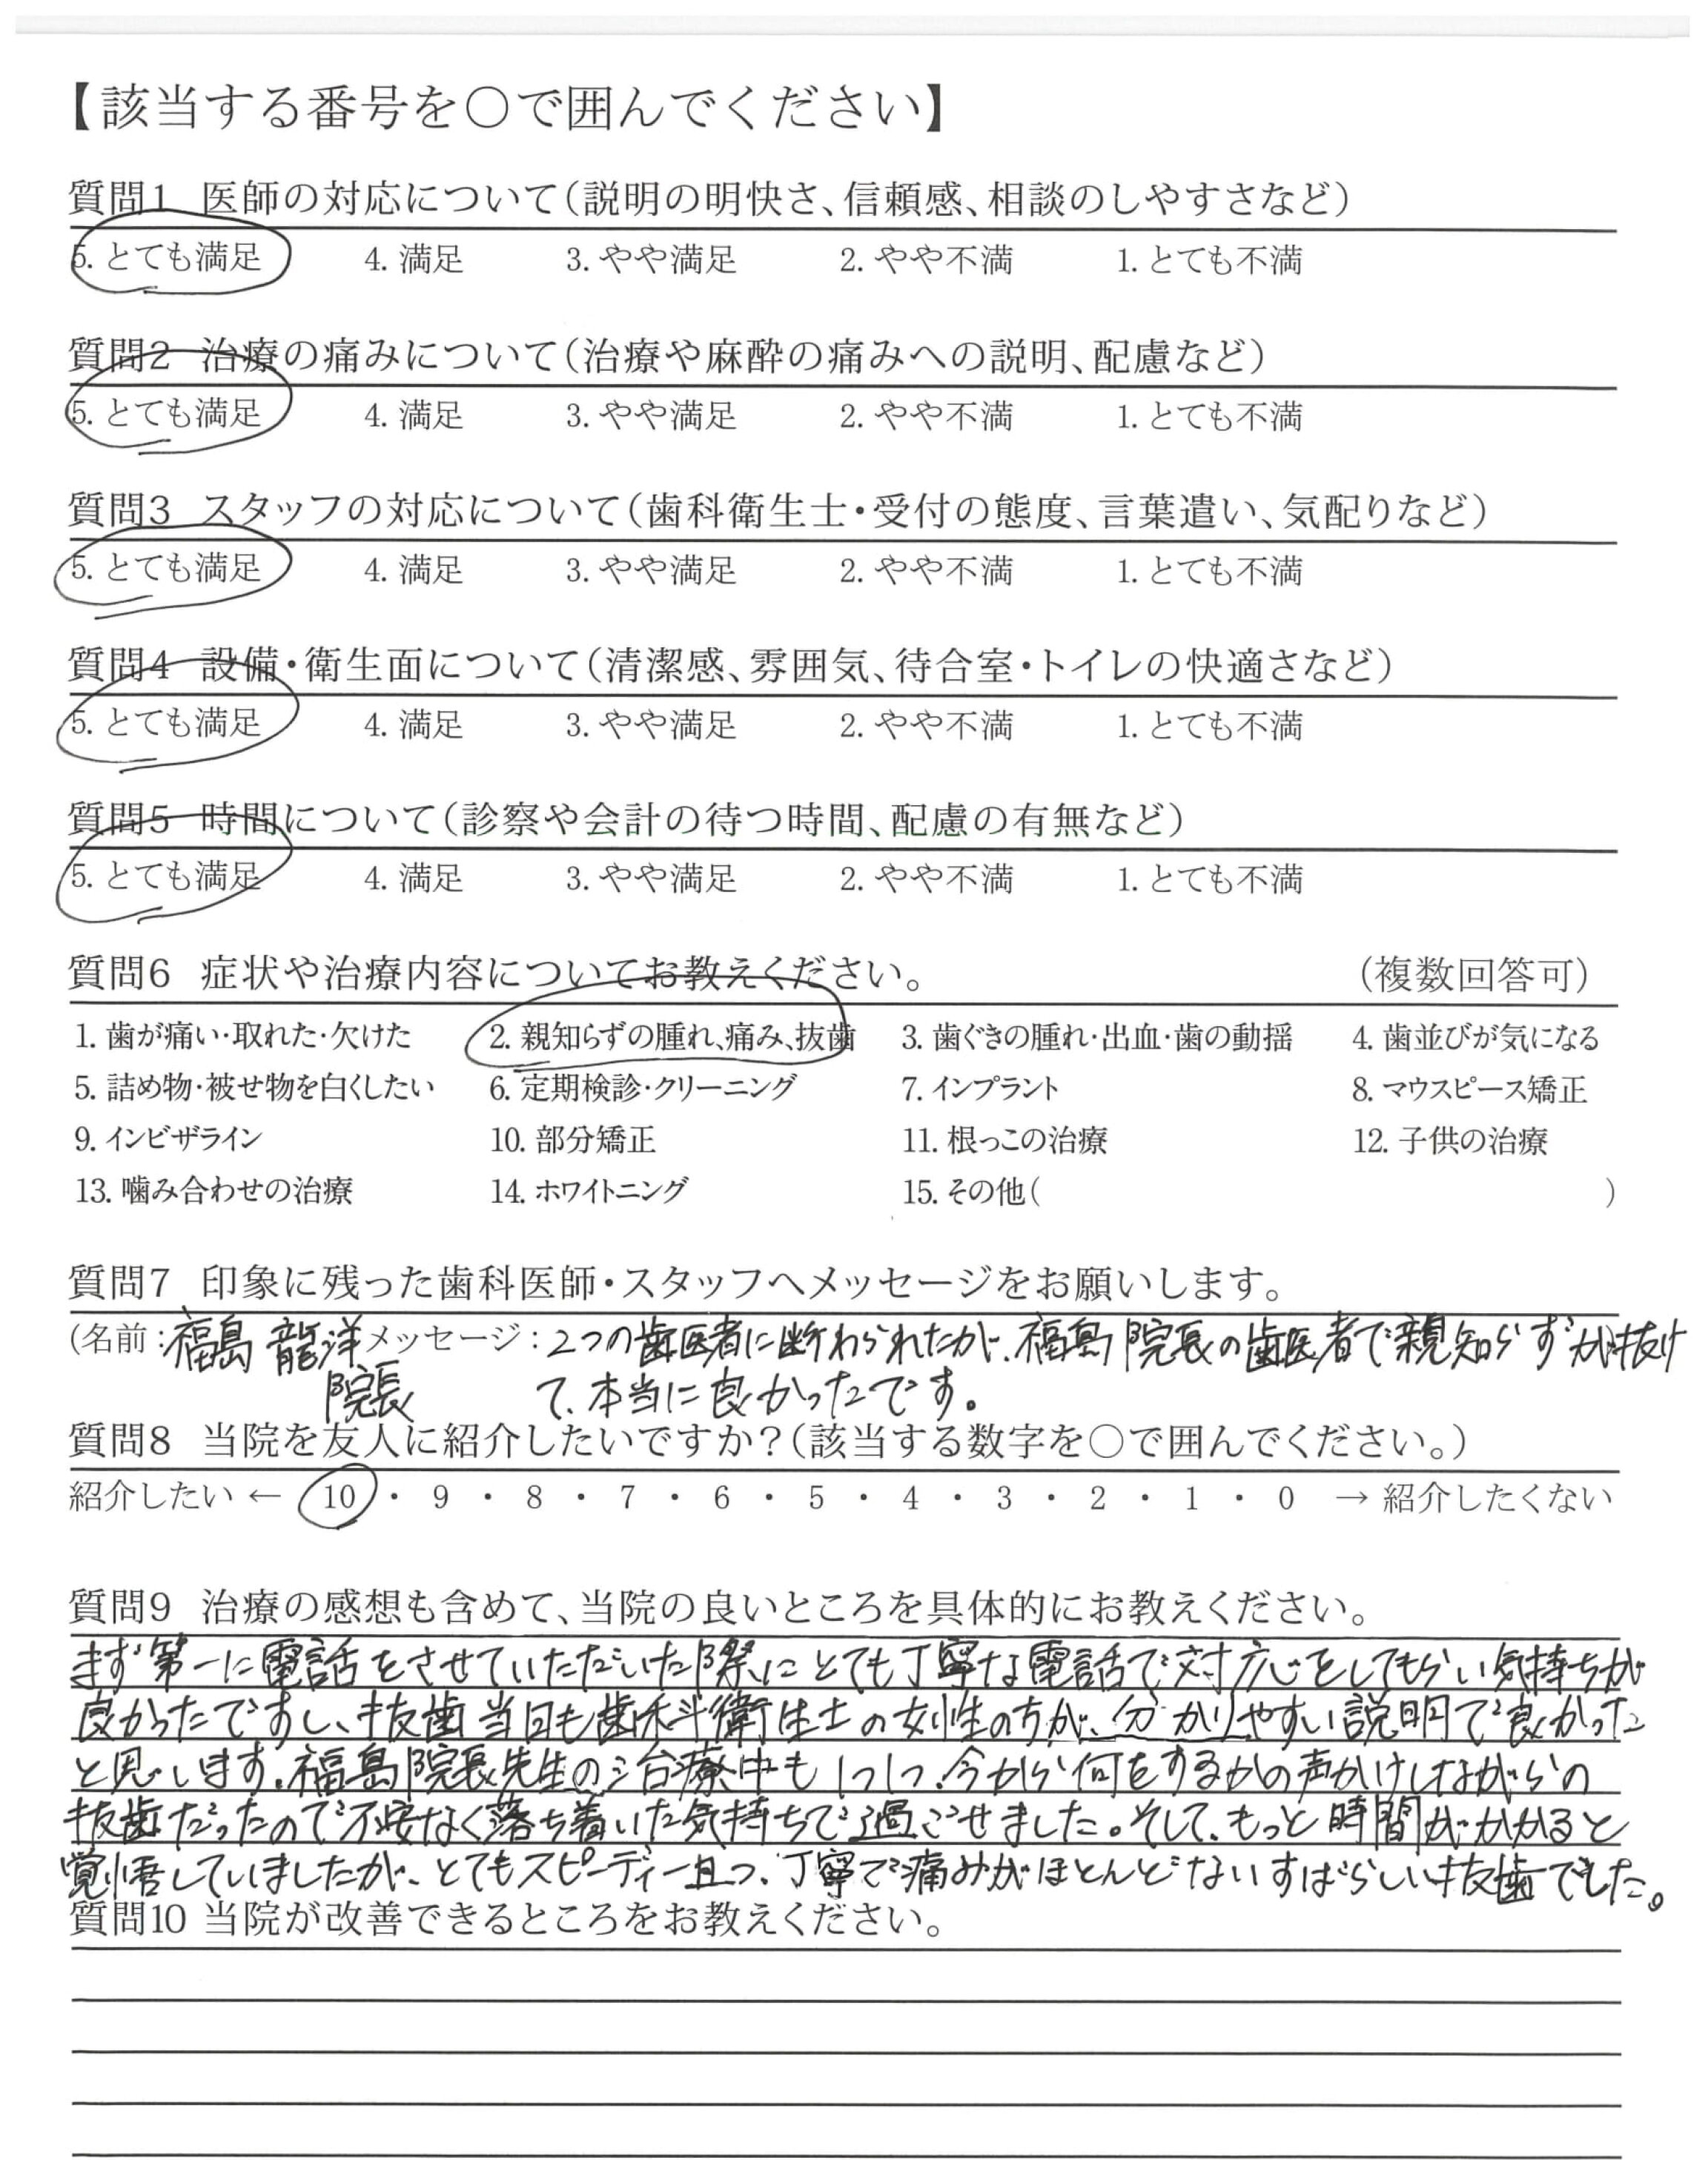 【該当する番号を○で囲んでください】
質問1 医師の対応について(説明の明快さ、信頼感、相談のしやすさなど)
5. とても満足 4. 満足 3. やや満足 2. やや不満 1. とても不満
質問2 治療の痛みについて(治療や麻酔の痛みへの説明、配慮など)
5. とても満足 4. 満足 3. やや満足 2. やや不満 1. とても不満
質問3 スタッフの対応について(歯科衛生士・受付の態度、言葉遣い、気配りなど)
5. とても満足 4. 満足 3. やや満足 2. やや不満 1. とても不満
質問4 設備・衛生面について(清潔感、雰囲気、待合室・トイレの快適さなど)
5. とても満足 4. 満足 3. やや満足 2. やや不満 1. とても不満
質問5 時間について(診察や会計の待つ時間、配慮の有無など)
5. とても満足 4. 満足 3. やや満足 2. やや不満 1. とても不満
質問6 症状や治療内容についてお教えください。 (複数回答可)
1. 歯が痛い・取れた・欠けた 2. 親知らずの腫れ、痛み、抜歯 3. 歯ぐきの腫れ・出血・歯の動揺 4. 歯並びが気になる
5. 詰め物・被せ物を白くしたい 6. 定期検診・クリーニング 7. インプラント 8. マウスピース矯正
9. インビザライン 10. 部分矯正 11. 根っこの治療 12. 子供の治療
13. 噛み合わせの治療 14. ホワイトニング 15. その他( )
質問7 印象に残った歯科医師・スタッフへメッセージをお願いします。
(名前:福島 龍洋 メッセージ:2つの歯医者に断わられたが、福島院長の歯医者で親知らずが抜け
院長 て、本当に良かったです。
質問8 当院を友人に紹介したいですか?(該当する数字を○で囲んでください。)
紹介したい ← 10 ・ 9 ・ 8 ・ 7 ・ 6 ・ 5 ・ 4 ・ 3 ・ 2 ・ 1 ・ 0 → 紹介したくない
質問9 治療の感想も含めて、当院の良いところを具体的にお教えください。
まず第一に電話をさせていただいた際にとても丁寧な電話で対応をしてもらい気持ちが
良かったですし、抜歯当日も歯科衛生士の女性の方が、分かりやすい説明で良かった
と思います。福島院長先生の治療中も1つ1つ、今から何をするかの声かけしながらの
抜歯だったので不安なく落ち着いた気持ちで過ごせました。そして、もっと時間がかかると
覚悟していましたが、とてもスピーディー且つ、丁寧で痛みがほとんどないすばらしい抜歯でした。
質問10 当院が改善できるところをお教えください。